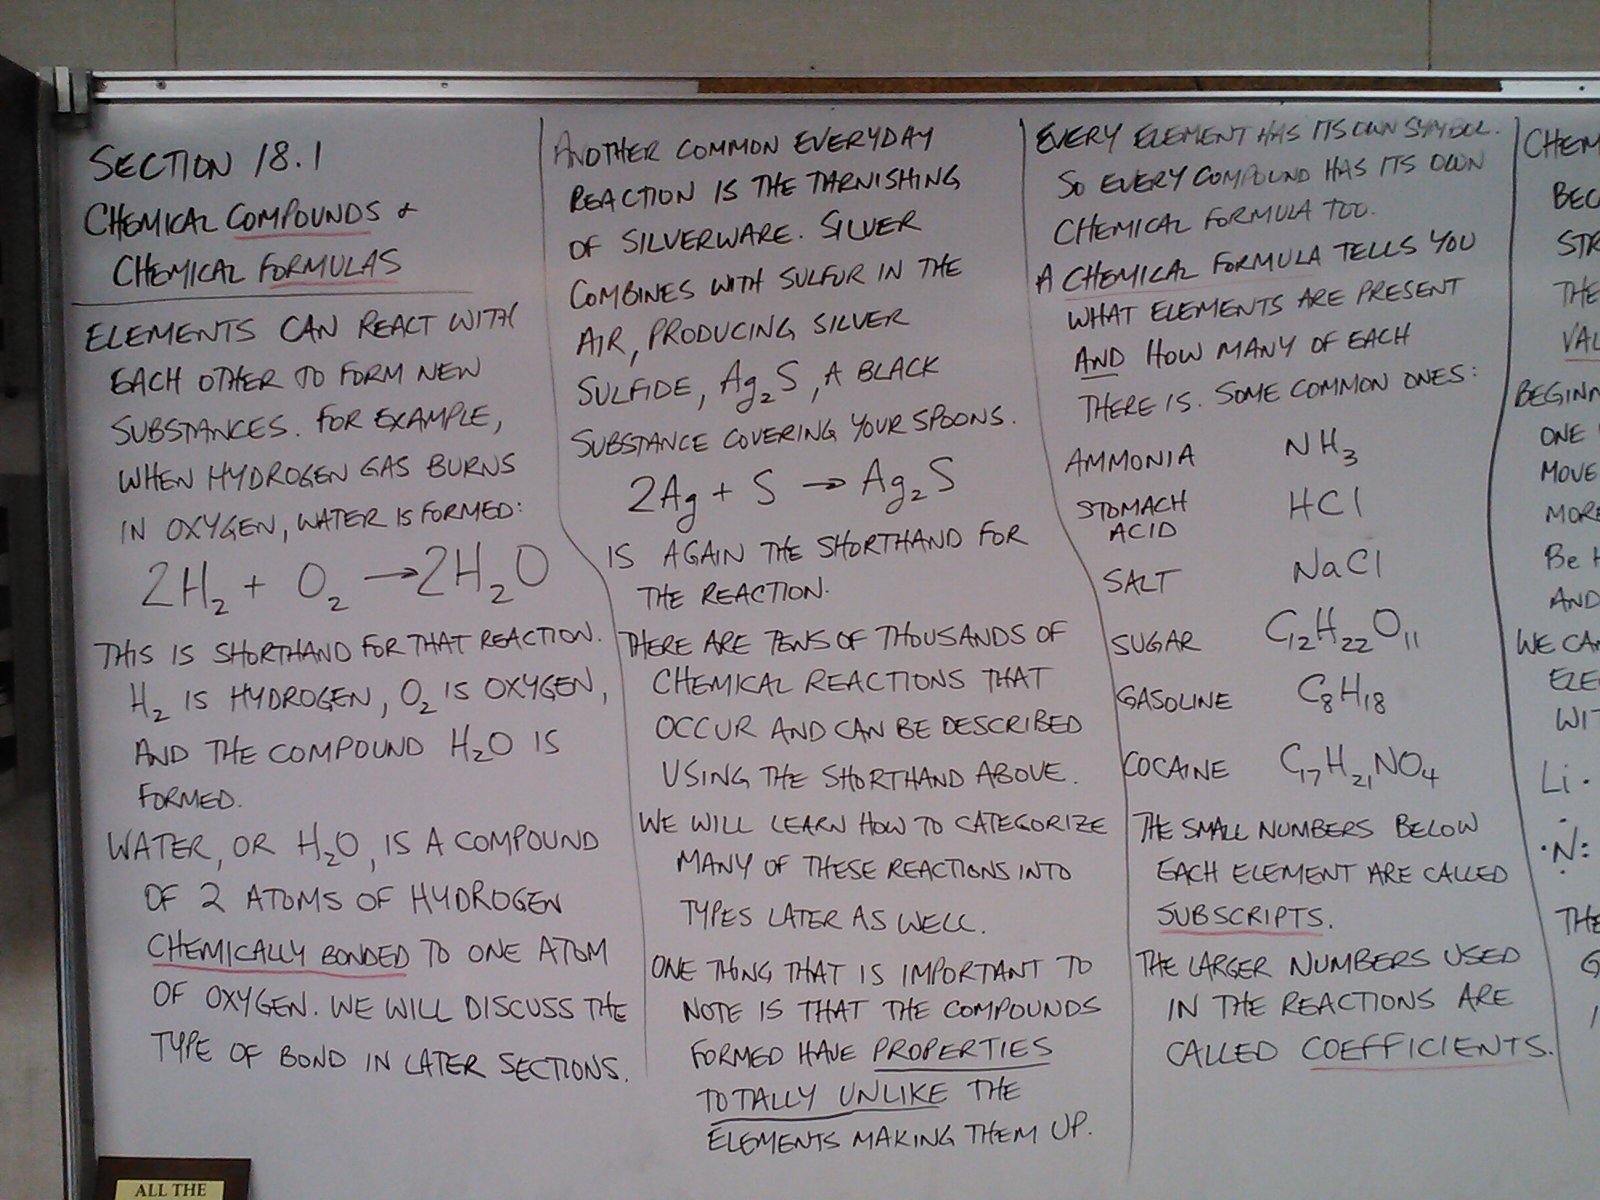 SECTION 18.1
CHEMICAL COMPOUNDS &
CHEMICAL FORMULAS
ELEMENTS CAN REACT WITH
EACH OTHER TO FORM NEW
SUBSTANCES. FOR EXAMPLE,
WHEN HYDROGEN GAS BURNS
IN OXYGEN, WATER IS FORMED:
2H₂ + O₂ → 2H₂O
THIS IS SHORTHAND FOR THAT REACTION.
H₂ IS HYDROGEN, O₂ IS OXYGEN,
AND THE COMPOUND H₂O IS
FORMED.
WATER, OR H₂O, IS A COMPOUND
OF 2 ATOMS OF HYDROGEN
CHEMICALLY BONDED TO ONE ATOM
OF OXYGEN. WE WILL DISCUSS THE
TYPE OF BOND IN LATER SECTIONS.
ANOTHER COMMON EVERYDAY
REACTION IS THE TARNISHING
OF SILVERWARE. SILVER
COMBINES WITH SULFUR IN THE
AIR, PRODUCING SILVER
SULFIDE, Ag₂S, A BLACK
SUBSTANCE COVERING YOUR SPOONS.
2Ag + S → Ag₂S
IS AGAIN THE SHORTHAND FOR
THE REACTION.
THERE ARE TENS OF THOUSANDS OF
CHEMICAL REACTIONS THAT
OCCUR AND CAN BE DESCRIBED
USING THE SHORTHAND ABOVE.
WE WILL LEARN HOW TO CATEGORIZE
MANY OF THESE REACTIONS INTO
TYPES LATER AS WELL.
ONE THING THAT IS IMPORTANT TO
NOTE IS THAT THE COMPOUNDS
FORMED HAVE PROPERTIES
TOTALLY UNLIKE THE
ELEMENTS MAKING THEM UP.
EVERY ELEMENT HAS ITS OWN SYMBOL.
SO EVERY COMPOUND HAS ITS OWN
CHEMICAL FORMULA TOO.
A CHEMICAL FORMULA TELLS YOU
WHAT ELEMENTS ARE PRESENT
AND HOW MANY OF EACH
THERE IS. SOME COMMON ONES:
AMMONIA NH₃
STOMACH ACID HCl
SALT NaCl
SUGAR C₁₂H₂₂O₁₁
GASOLINE C₈H₁₈
COCAINE C₁₇H₂₁NO₄
THE SMALL NUMBERS BELOW
EACH ELEMENT ARE CALLED
SUBSCRIPTS.
THE LARGER NUMBERS USED
IN THE REACTIONS ARE
CALLED COEFFICIENTS.
CHEM
BEC
STR
THE
VAL
BEGINN
ONE
MOVE
MORE
Be
AND
WE CA
ELE
WIT
Li ·
·N:
THE
G
ALL THE